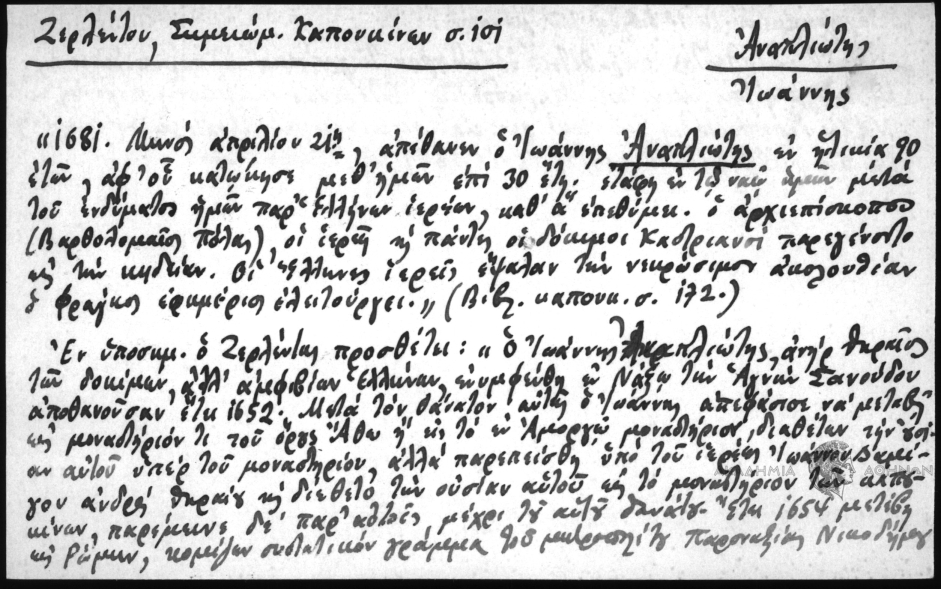 Ζερλέντου, Σημειώμ. Καπουκίνων σ. ιδί
Ἀναπλιώτης
Ἰωάννης
"1681. Μηνὸς ἀπριλίου 21ῃ, ἀπέθανεν ὁ Ἰωάννης Ἀναπλιώτης ἐν ἡλικίᾳ 90
ἐτῶν, ἀφ' οὗ κατῴκησε μεθ' ἡμῶν ἐπί 30 ἔτη. ἐτάφη ἐν τῷ ναῷ ἡμῶν μετά
τοῦ ἐνδύματος ἡμῶν παρ' Ἑλλήνων ἱερέων, καθ' ἃ ἐπεθύμει. ὁ ἀρχιεπίσκοπος
(Βαρθολομαῖος Πόλας), οἱ ἱερεῖς κὴ πάντες οἱ δόκιμοι Καστριανοί παρεγένοντο
εἰς τὴν κηδείαν. Οἱ Ἕλληνες ἱερεῖς ἔψαλαν τὴν νεκρώσιμον ἀκολουθίαν
ὁ φράγκος ἐφημέριος ἐλειτούργει." (Βιβλ. καπουκ. σ. 172.)
Ἐν ὑποσημ. ὁ Ζερλέντης προσθέτει: "ὁ Ἰωάννης Ἀναπλιώτης, ἀνήρ θηραῖος
τῶν δοκίμων, ἀλλ' ἀμφιβίων Ἑλλήνων, ἐνυμφεύθη ἐν Νάξῳ τὴν Ἁγνήν Σανούδου
ἀποθανοῦσαν ἔτει 1652. Μετά τὸν θάνατον αὐτῆς ὁ Ἰωάννης ἀπεφάσισε νά μεταβῇ
εἰς μοναστήριόν τι τοῦ ὄρους Ἄθω ἤ εἰς τό ἐν Ἀμοργῷ μοναστήριον, διαθέτων τὴν οὐσί-
αν αὐτοῦ ὑπέρ τοῦ μοναστηρίου, ἀλλά παρεπείσθη ὑπό τοῦ ἱερέως Ἰωάννου
ἀνδρός θηραίου κὴ διέθετο τὴν οὐσίαν αὐτοῦ εἰς τό μοναστήριον τῶν καπου-
κίνων, παρέμεινε δέ παρ' αὐτοῖς μέχρι τοῦ αὐτοῦ θανάτου. Ἔτει 1654 μετέβη
εἰς Ῥώμην, κομίζων συστατικόν γράμμα τοῦ μητροπολίτου Παροναξίας Νικοδήμου
ΑΚΑΔΗΜΙΑ ΑΘΗΝΩΝ